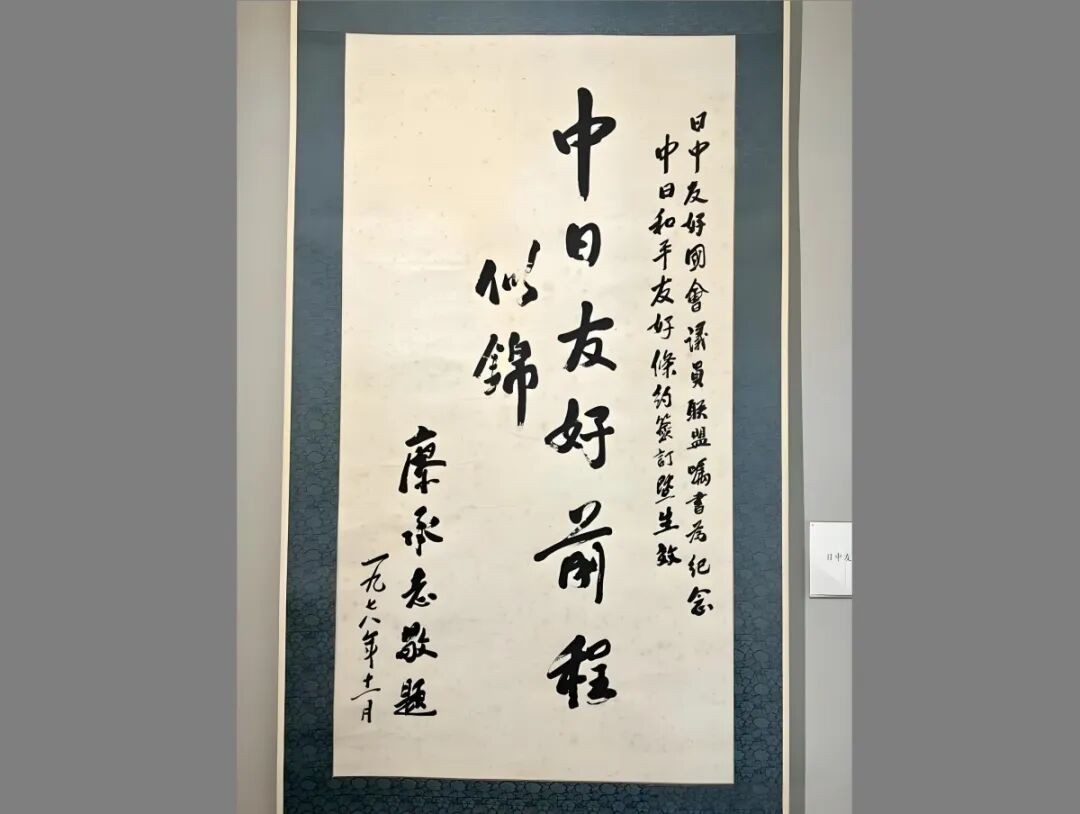 日中友好國會議員联盟嘱書为纪念
中日和平友好條约签訂暨生效
中日友好前程
似錦
廖承志敬題
一九七八年十一月
日中友